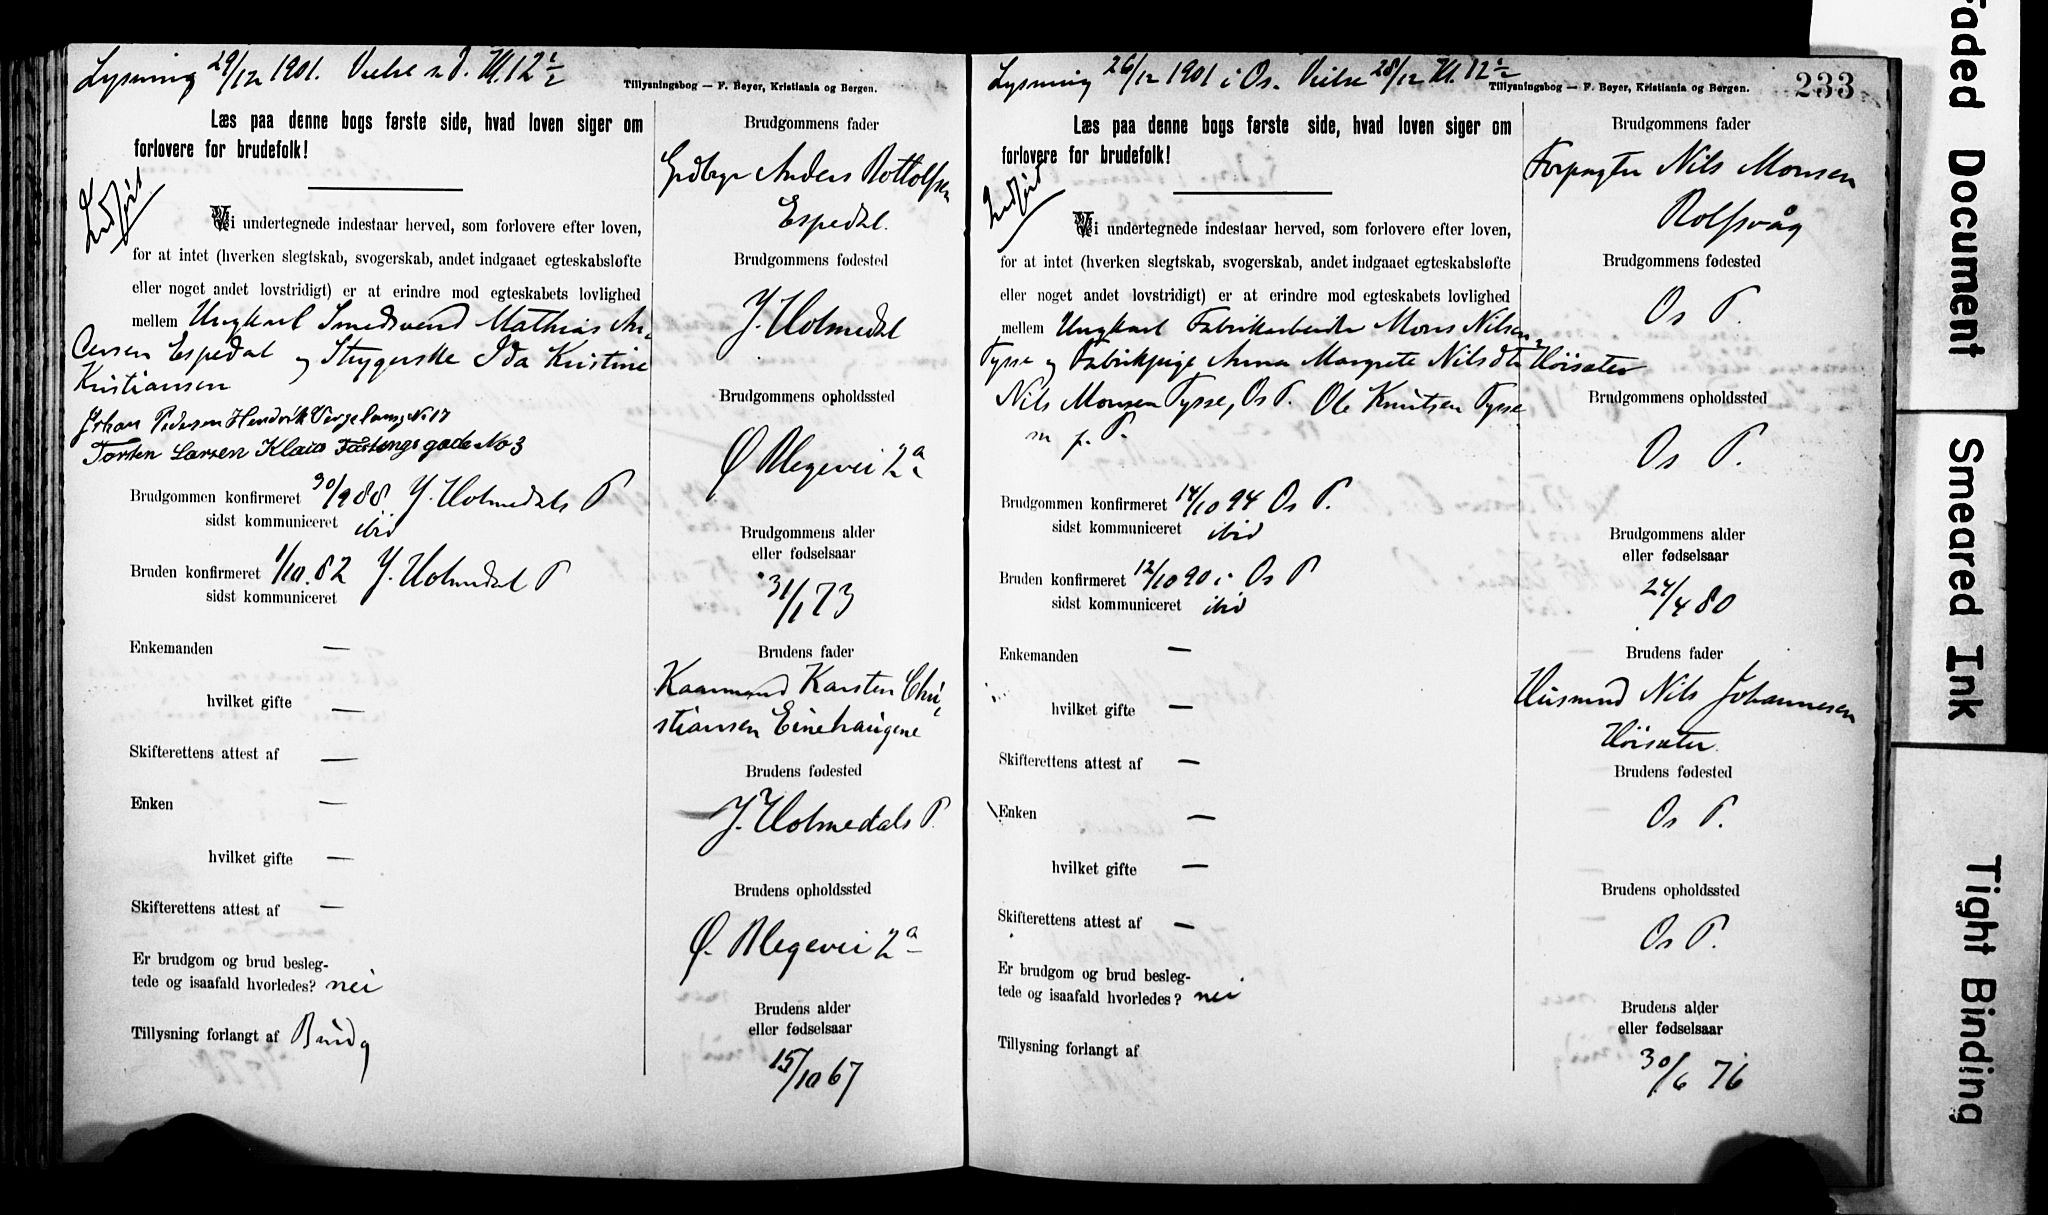 Lysning 29/12 1901. Vielse s. D. Kl. 12 1/2
Tillysningsbog — F. Beyer, Kristiania og Bergen.
Læs paa denne bogs første side, hvad loven siger om
forlovere for brudefolk!
Indført
Vi undertegnede indestaar herved, som forlovere efter loven,
for at intet (hverken slegtskab, svogerskab, andet indgaaet egteskabsløfte
eller noget andet lovstridigt) er at erindre mod egteskabets lovlighed
mellem Ungkarl Smedsvend Mathias An-
dersen Espedal og Strygerske Ida Kristine
Kristiansen
Johan Pedersen Hendrik Vergelandsg No 17
Torsten Larsen Klaus Fastings gade No 3
Brudgommen konfirmeret 30/9 88 Y. Holmedals P
sidst kommuniceret ibid
Bruden konfirmeret 1/10. 82 Y. Holmedal P
sidst kommuniceret
Enkemanden —
hvilket gifte —
Skifterettens attest af —
Enken —
hvilket gifte —
Skifterettens attest af —
Er brudgom og brud besleg-
tede og isaafald hvorledes? nei
Tillysning forlangt af Brudg
Brudgommens fader
Grdbrgr Anders Rottolfsen
Espedal.
Brudgommens fødested
Y. Holmedal
Brudgommens opholdssted
Ø Blegevei 2a
Brudgommens alder
eller fødselsaar
31/1 73
Brudens fader
Kaarmand Karsten Chri-
stiansen Einehaugene
Brudens fødested
Y. Holmedals P.
Brudens opholdssted
Ø. Blegevei 2a
Brudens alder
eller fødselsaar
15/10 67
Lysning 26/12 1901 i Os. Vielse 28/12 Kl. 12 1/2
Tillysningsbog — F. Beyer, Kristiania og Bergen.
233
Læs paa denne bogs første side, hvad loven siger om
forlovere for brudefolk!
Indført
Vi undertegnede indestaar herved, som forlovere efter loven,
for at intet (hverken slegtskab, svogerskab, andet indgaaet egteskabsløfte
eller noget andet lovstridigt) er at erindre mod egteskabets lovlighed
mellem Ungkarl Fabrikarbeider Mons Nilsen
Tysse og Fabrikpige Anna Margrete Nilsdtr Høisæter
Nils Monsen Tysse, Os P. Ole Knutsen Tysse
sm p. P.
Brudgommen konfirmeret 14/10 94 Os P.
sidst kommuniceret ibid
Bruden konfirmeret 12/10 90 i Os P
sidst kommuniceret ibid
Enkemanden —
hvilket gifte —
Skifterettens attest af —
Enken —
hvilket gifte —
Skifterettens attest af —
Er brudgom og brud besleg-
tede og isaafald hvorledes? nei
Tillysning forlangt af
Brudgommens fader
Forpagter Nils Monsen
Rolfsvåg
Brudgommens fødested
Os P.
Brudgommens opholdssted
Os P.
Brudgommens alder
eller fødselsaar
24/4 80
Brudens fader
Husmand Nils Johannesen
Høisæter
Brudens fødested
Os P.
Brudens opholdssted
Os P.
Brudens alder
eller fødselsaar
30/6 76
Faded Document
Smeared Ink
Tight Binding